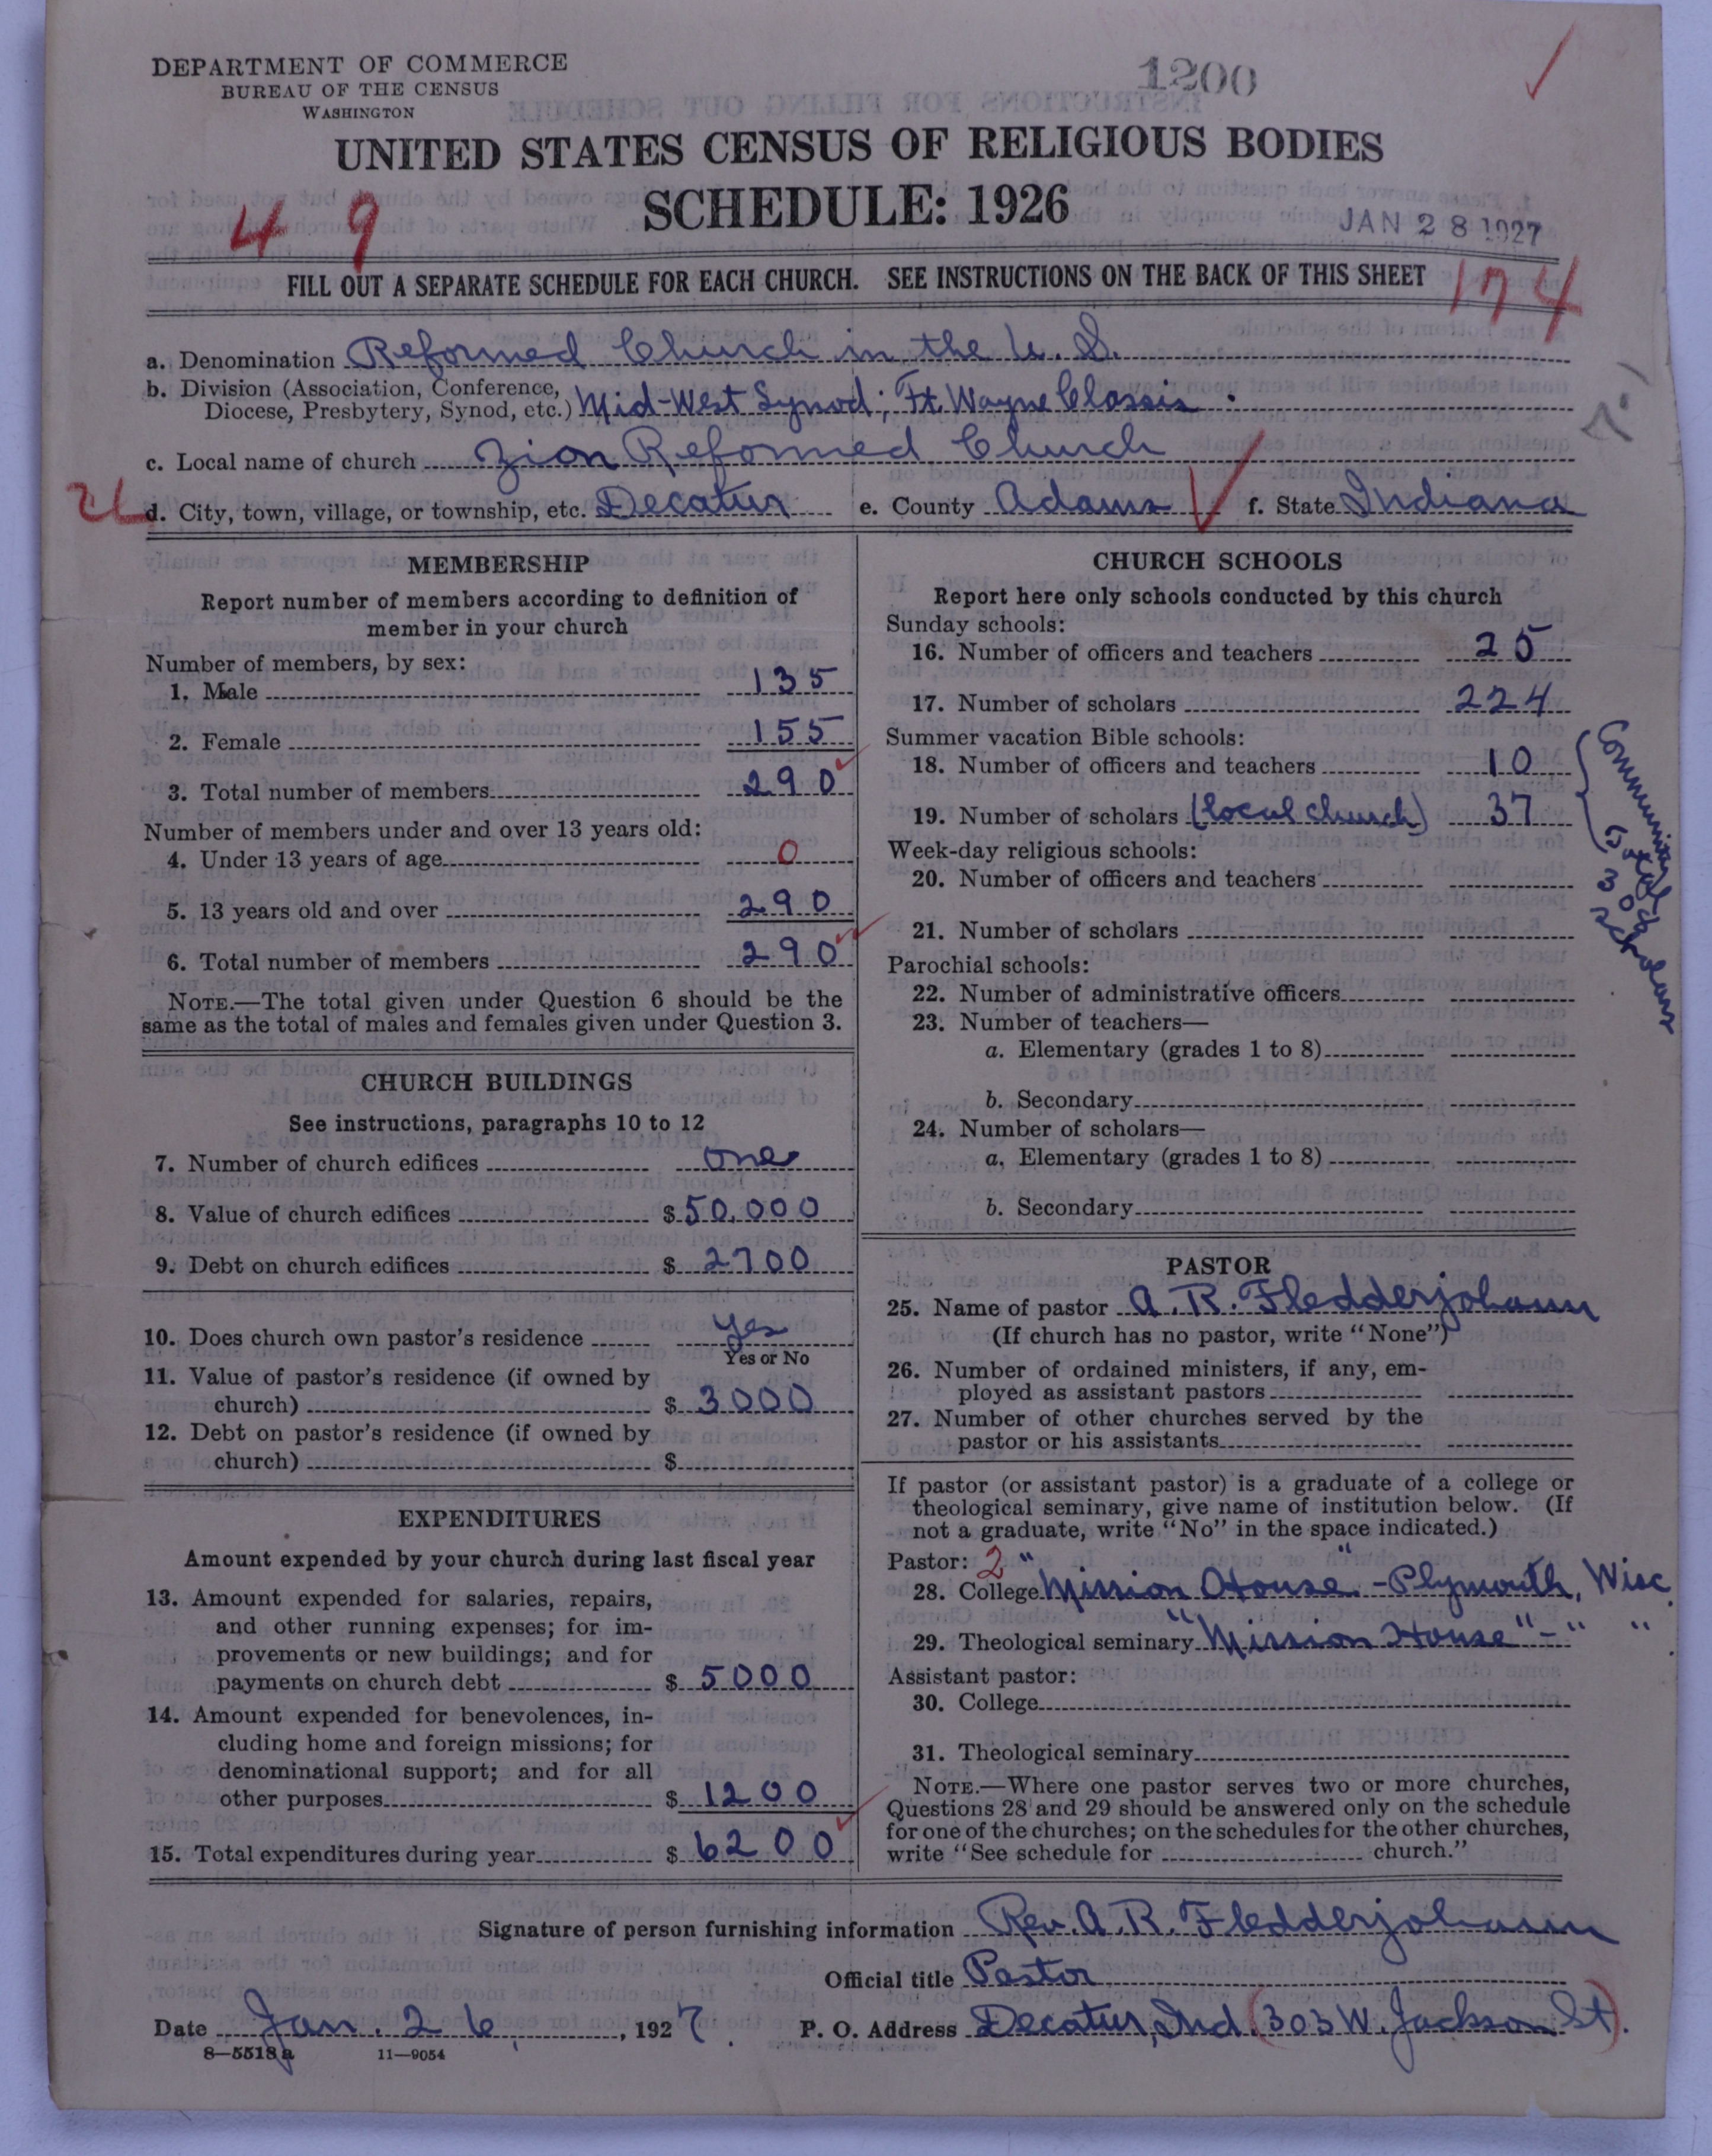 DEPARTMENT OF COMMERCE
BUREAU OF THE CENSUS
WASHINGTON
1200
UNITED STATES CENSUS OF RELIGIOUS BODIES
SCHEDULE: 1926
4 9
JAN 28 1927
FILL OUT A SEPARATE SCHEDULE FOR EACH CHURCH. SEE INSTRUCTIONS ON THE BACK OF THIS SHEET
174
a. Denomination Reformed Church in the U. S.
b. Division (Association, Conference,
Diocese, Presbytery, Synod, etc.) Mid-West Synod; Ft. Wayne Classis.
c. Local name of church Zion Reformed Church
d. City, town, village, or township, etc. Decatur e. County Adams f. State Indiana
MEMBERSHIP
Report number of members according to definition of
member in your church
Number of members, by sex:
1. Male 135
2. Female 155
3. Total number of members 290
Number of members under and over 13 years old:
4. Under 13 years of age 0
5. 13 years old and over 290
6. Total number of members 290
NOTE.—The total given under Question 6 should be the
same as the total of males and females given under Question 3.
CHURCH BUILDINGS
See instructions, paragraphs 10 to 12
7. Number of church edifices one
8. Value of church edifices $50,000
9. Debt on church edifices $2700
10. Does church own pastor's residence yes
Yes or No
11. Value of pastor's residence (if owned by
church) $3000
12. Debt on pastor's residence (if owned by
church) $
EXPENDITURES
Amount expended by your church during last fiscal year
13. Amount expended for salaries, repairs,
and other running expenses; for im-
provements or new buildings; and for
payments on church debt $5000
14. Amount expended for benevolences, in-
cluding home and foreign missions; for
denominational support; and for all
other purposes $1200
15. Total expenditures during year $6200
CHURCH SCHOOLS
Report here only schools conducted by this church
Sunday schools:
16. Number of officers and teachers 25
17. Number of scholars 224
Summer vacation Bible schools:
18. Number of officers and teachers 10
19. Number of scholars (local church) 37
Community
Total
306
Scholars
Week-day religious schools:
20. Number of officers and teachers
21. Number of scholars
Parochial schools:
22. Number of administrative officers
23. Number of teachers—
a. Elementary (grades 1 to 8)
b. Secondary
24. Number of scholars—
a. Elementary (grades 1 to 8)
b. Secondary
PASTOR
25. Name of pastor A. R. Fledderjohann
(If church has no pastor, write "None")
26. Number of ordained ministers, if any, em-
ployed as assistant pastors
27. Number of other churches served by the
pastor or his assistants
If pastor (or assistant pastor) is a graduate of a college or
theological seminary, give name of institution below. (If
not a graduate, write "No" in the space indicated.)
Pastor: 2
28. College "Mission House" - Plymouth, Wisc
29. Theological seminary "Mission House" - " "
Assistant pastor:
30. College
31. Theological seminary
NOTE.—Where one pastor serves two or more churches,
Questions 28 and 29 should be answered only on the schedule
for one of the churches; on the schedules for the other churches,
write "See schedule for church."
Signature of person furnishing information Rev. A. R. Fledderjohann
Official title Pastor
Date Jan. 26, 1927. P. O. Address Decatur, Ind. (303 W. Jackson St).
8—5518a 11—9054